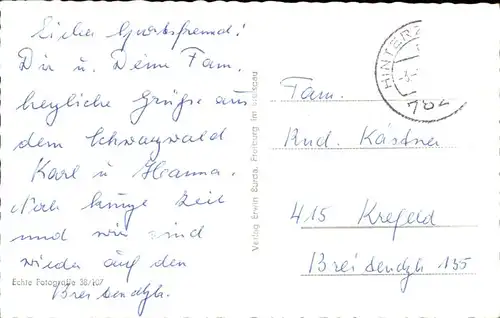 Lieber Sportsfreund!
Dir u. Deine Fam.
herzliche Grüße aus
dem Schwarzwald
Karl u. Hanna.
Noch kurze Zeit
und wir sind
wieder auf den
Breidendyk.
Echte Fotografie 38/107
Verlag Erwin Burda, Freiburg im Breisgau
HINTERZ
Fam.
Rud. Kästner
415 Krefeld
Breidendyk 135